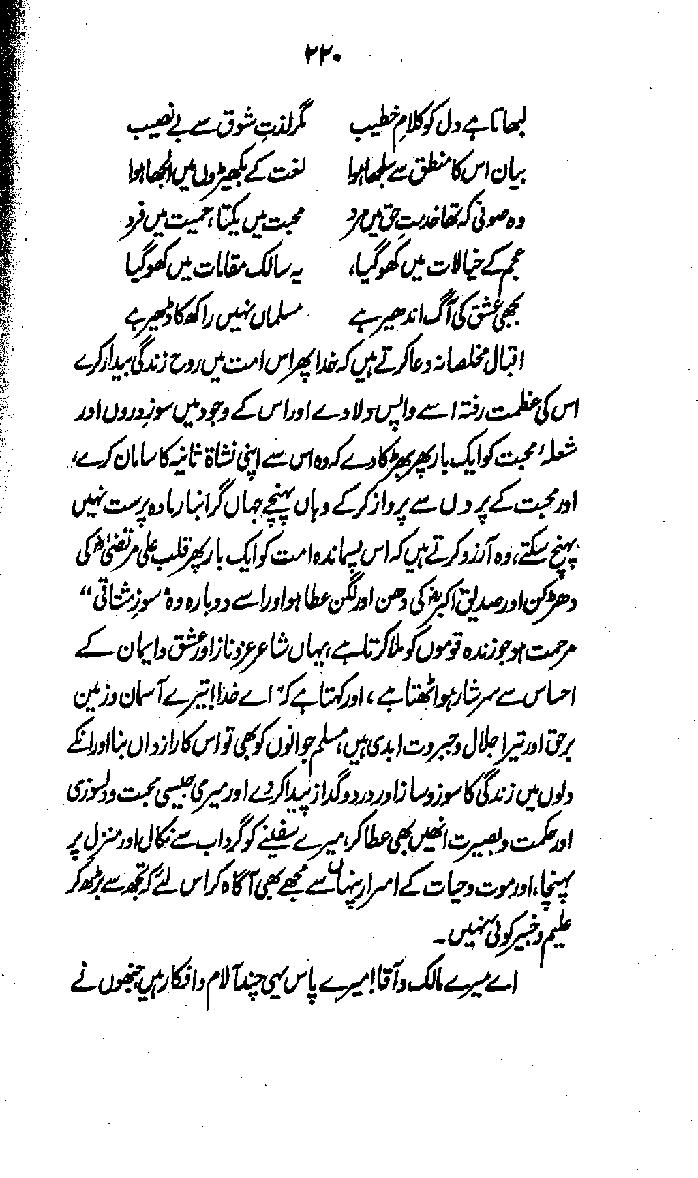 ۲۲۰
لبھاتا ہے دل کو کلامِ خطیب مگر لذتِ شوق سے بے نصیب
بیاں اس کا منطق سے سلجھا ہوا لغت کے بکھیڑوں میں الجھا ہوا
وہ صوفی کہ تھا خدمتِ حق میں مرد محبت میں یکتا، حمیت میں فرد
عجم کے خیالات میں کھو گیا، یہ سالک مقامات میں کھو گیا
بجھی عشق کی آگ اندھیر ہے مسلماں نہیں راکھ کا ڈھیر ہے
اقبال مخلصانہ دعا کرتے ہیں کہ خدا پھر اس امت میں روح زندگی بیدار کرے
اس کی عظمت رفتہ اسے واپس دلا دے اور اس کے وجود میں سوز دروں اور
شعلۂ محبت کو ایک بار پھر بھڑکا دے کہ وہ اس سے اپنی نشاۃ ثانیہ کا سامان کرے،
اور محبت کے پروں سے پرواز کر کے وہاں پہنچے جہاں گرانبار مادہ پرست نہیں
پہنچ سکتے، وہ آرزو کرتے ہیں کہ اس پسماندہ امت کو ایک بار پھر قلب علی مرتضیٰؓ کی
دھڑکن اور صدیق اکبرؓ کی دھن اور لگن عطا ہو اور اسے دوبارہ وہ "سوز مشتاقی"
مرحمت ہو جو زندہ قوموں کو ملا کرتا ہے، یہاں شاعر عز و ناز اور عشق و ایمان کے
احساس سے سرشار ہو اٹھتا ہے، اور کہتا ہے کہ "اے خدا! تیرے آسمان و زمین
برحق اور تیرا جلال و جبروت ابدی ہیں، مسلم جوانوں کو بھی تو اس کا رازداں بنا اور انکے
دلوں میں زندگی کا سوز و ساز اور درد و گداز پیدا کر دے اور میری جیسی محبت و دلسوزی
اور حکمت و بصیرت انھیں بھی عطا کر، میرے سفینے کو گرداب سے نکال اور منزل پر
پہنچا، اور موت و حیات کے اسرار پنہاں سے مجھے بھی آگاہ کر اس لئے کہ تجھ سے بڑھ کر
علیم و خبیر کوئی نہیں۔
اے میرے مالک و آقا! میرے پاس یہی چند آلام و افکار ہیں جنھوں نے